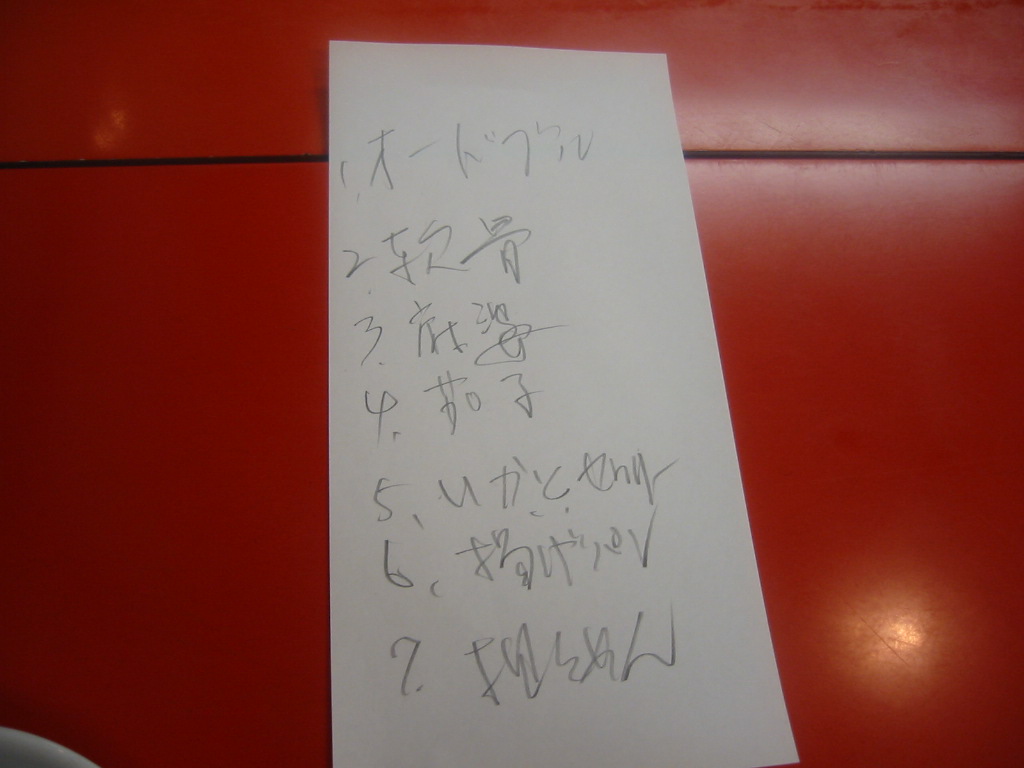 1. オードブル
2. 軟骨
3. 麻婆
4. 茄子
5. いかとセロリ
6. 揚げパン
7.